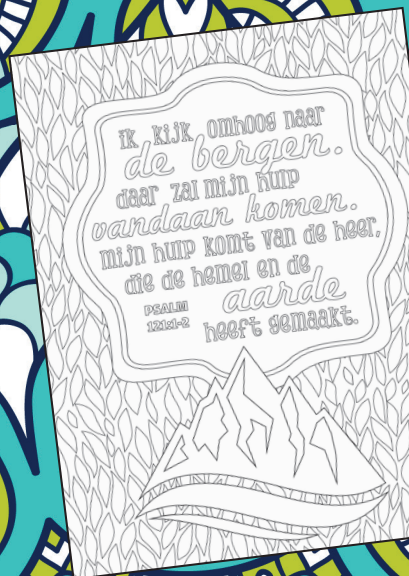 ik kijk omhoog naar
de bergen.
daar zal mijn hulp
vandaan komen.
mijn hulp komt van de heer,
die de hemel en de
aarde
PSALM
121:1-2
heeft gemaakt.